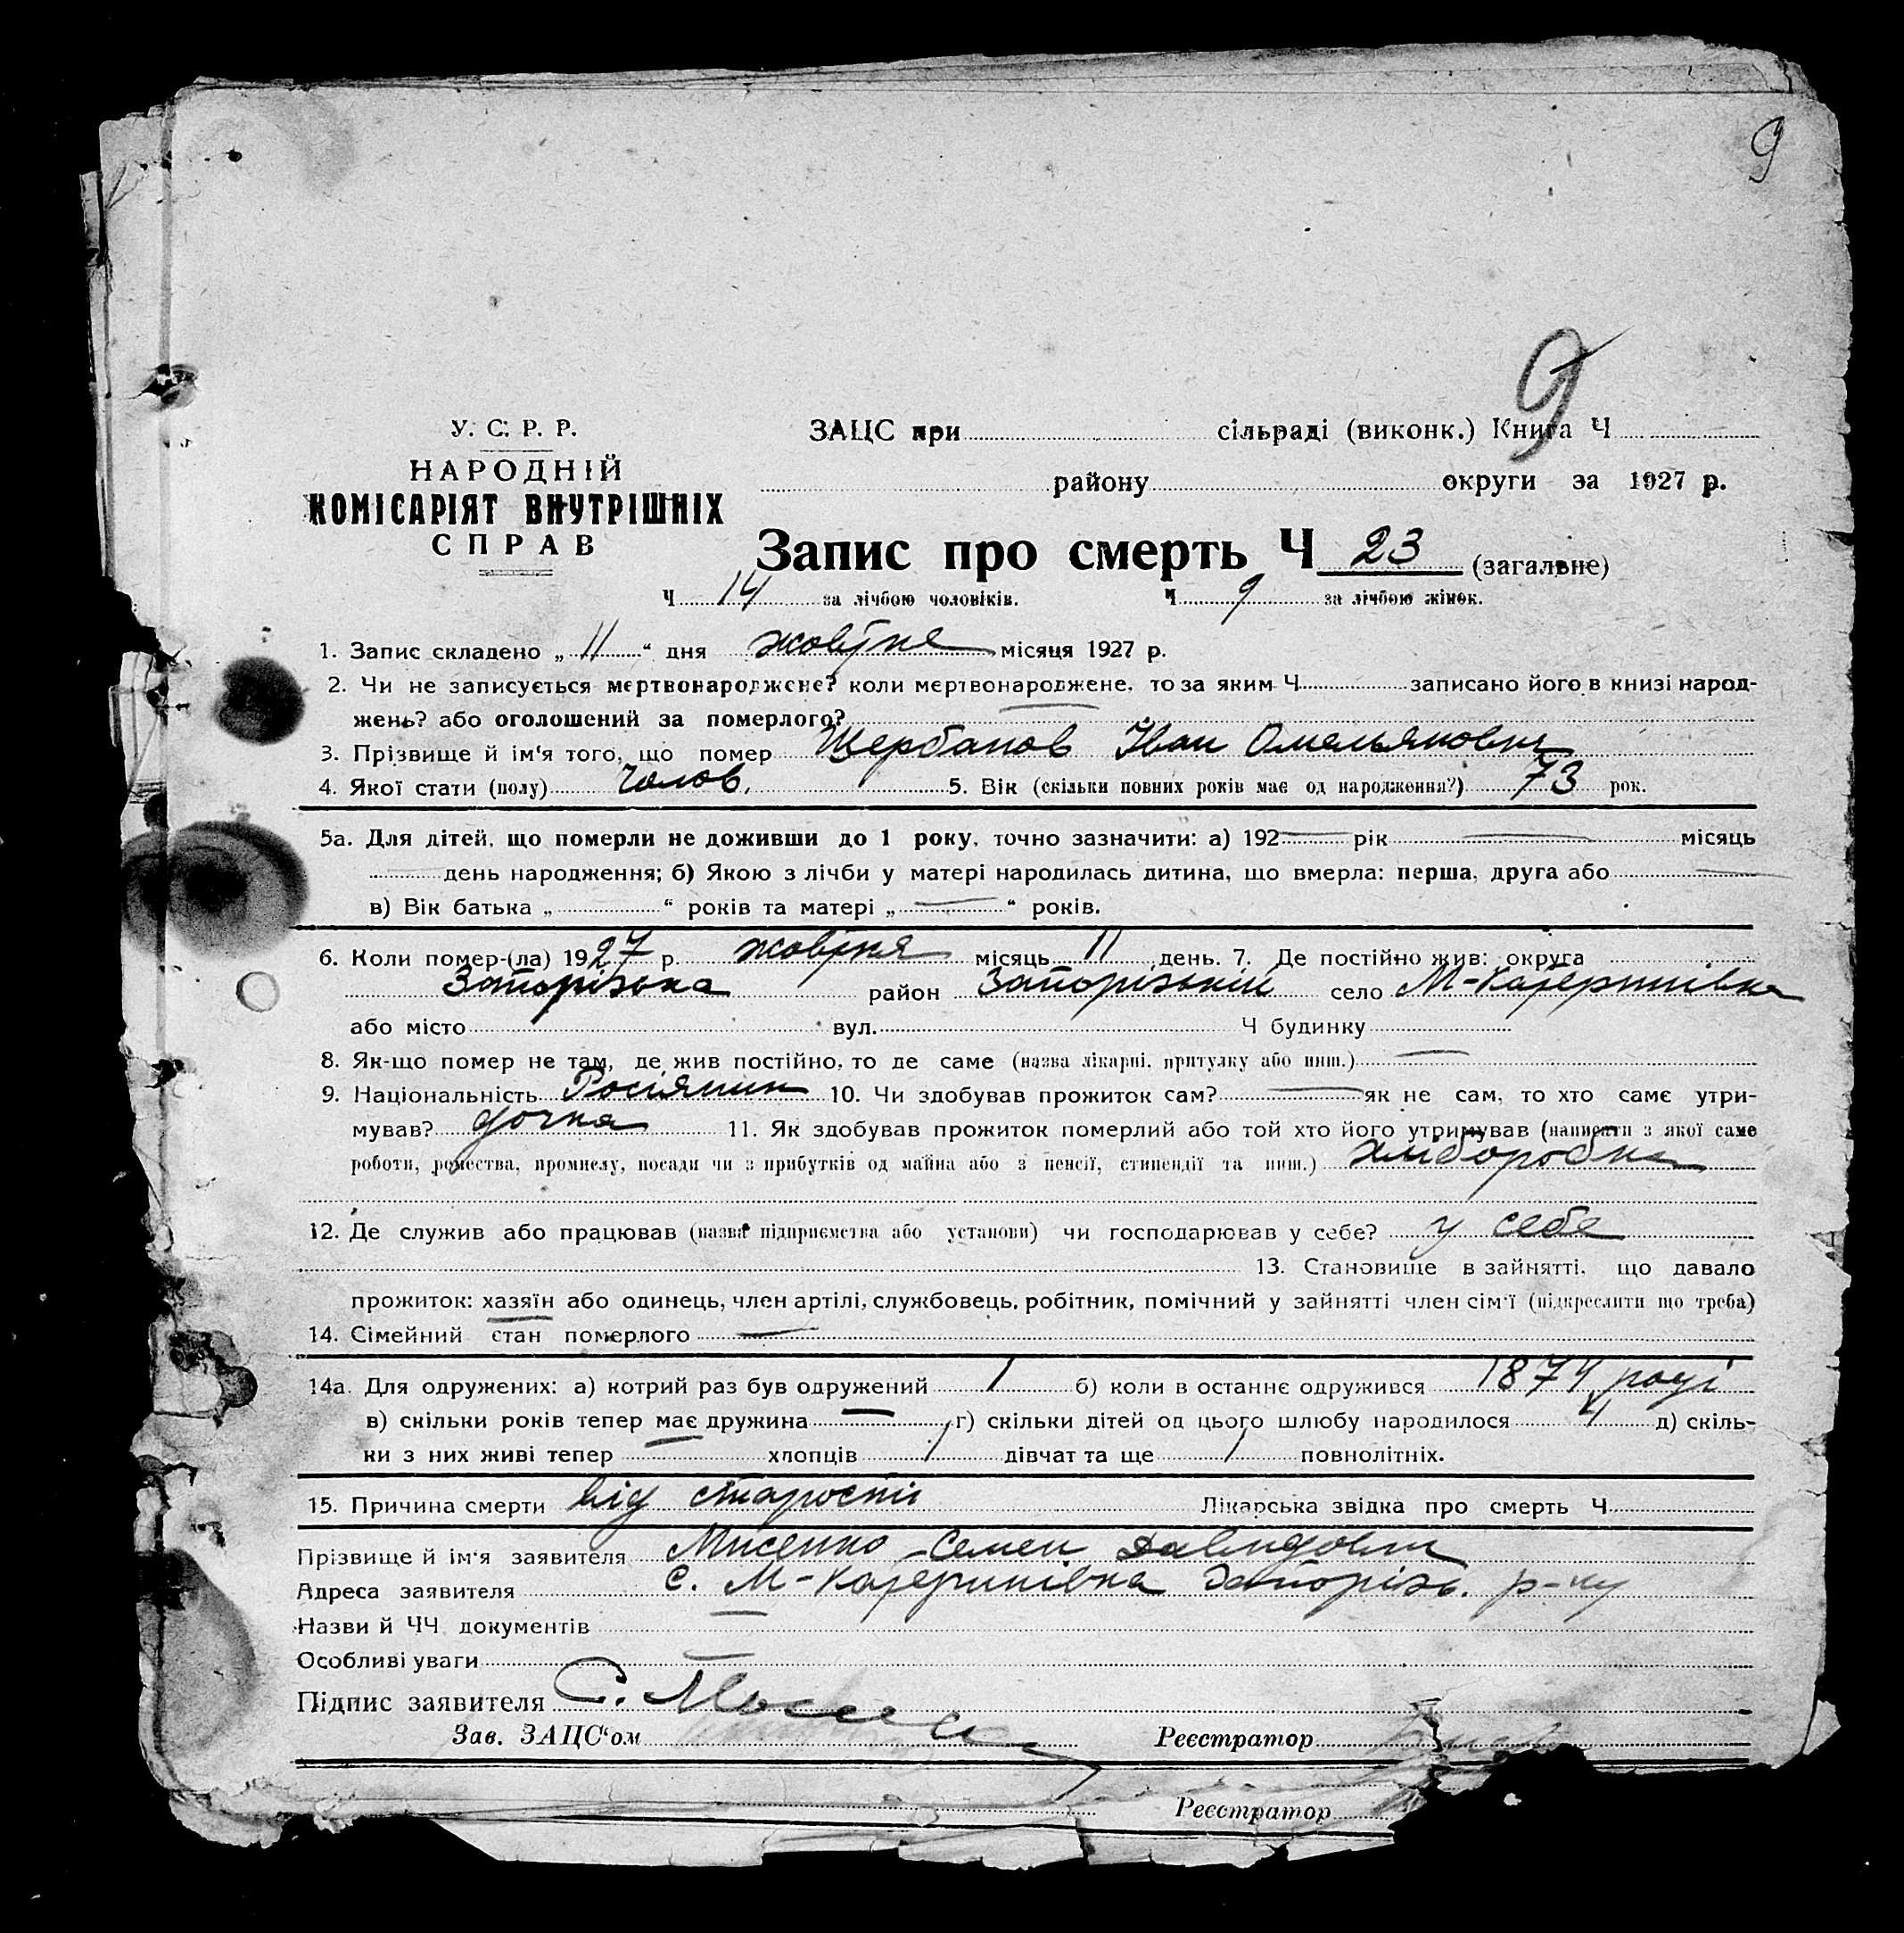 9
9
У. С. Р. Р.
НАРОДНІЙ
КОМІСАРІЯТ ВНУТРІШНІХ
СПРАВ
ЗАЦС при сільраді (виконк.) Книга Ч
району округи за 1927 р.
Запис про смерть Ч 23 (загальне)
Ч 14 за лічбою чоловіків. Ч 9 за лічбою жінок.
1. Запис складено „ 11 “ дня жовтня місяця 1927 р.
2. Чи не записується мертвонароджене? коли мертвонароджене, то за яким Ч записано його в книзі народ-
жень? або оголошений за померлого?
3. Прізвище й ім'я того, що помер Щербаков Іван Омельянович
4. Якої стати (полу) чолов. 5. Вік (скільки повних років має од народження?) 73 рок.
5а. Для дітей, що померли не доживши до 1 року, точно зазначити: а) 192— рік — місяць
— день народження; б) Якою з лічби у матері народилась дитина, що вмерла: перша, друга або —
в) Вік батька „ “ років та матері „ — “ років.
6. Коли помер-(ла) 1927 р. жовтня місяць 11 день. 7. Де постійно жив: округа
Запорізька район Запорізький село М-Катеринівка
або місто вул. Ч будинку
8. Як-що помер не там, де жив постійно, то де саме (назва лікарні, притулку або инш.) —
9. Національність Росіянин 10. Чи здобував прожиток сам? — як не сам, то хто саме утри-
мував? дочка 11. Як здобував прожиток померлий або той хто його утримував (написати з якої саме
роботи, ремества, промислу, посади чи з прибутків од майна або з пенсії, стипендії та инш.) хліборобка
12. Де служив або працював (назва підприємства або установи) чи господарював у себе? у себе
13. Становище в зайнятті, що давало
прожиток: хазяїн або одинець, член артілі, службовець, робітник, помічний у зайнятті член сім'ї (підкреслити що треба)
14. Сімейний стан померлого —
14а. Для одружених: а) котрий раз був одружений 1 б) коли в останнє одружився 1874 році
в) скільки років тепер має дружина — г) скільки дітей од цього шлюбу народилося 4 д) скіль-
ки з них живі тепер — хлопців 1 дівчат та ще 1 повнолітніх.
15. Причина смерти від старости Лікарська звідка про смерть Ч
Прізвище й ім'я заявителя Семен Давидович
Адреса заявителя с. М-Катеринівка Запорізь. р-ну
Назви й ЧЧ документів —
Особливі уваги
Підпис заявителя С.
Зав. ЗАЦС'ом Реєстратор
Реєстратор